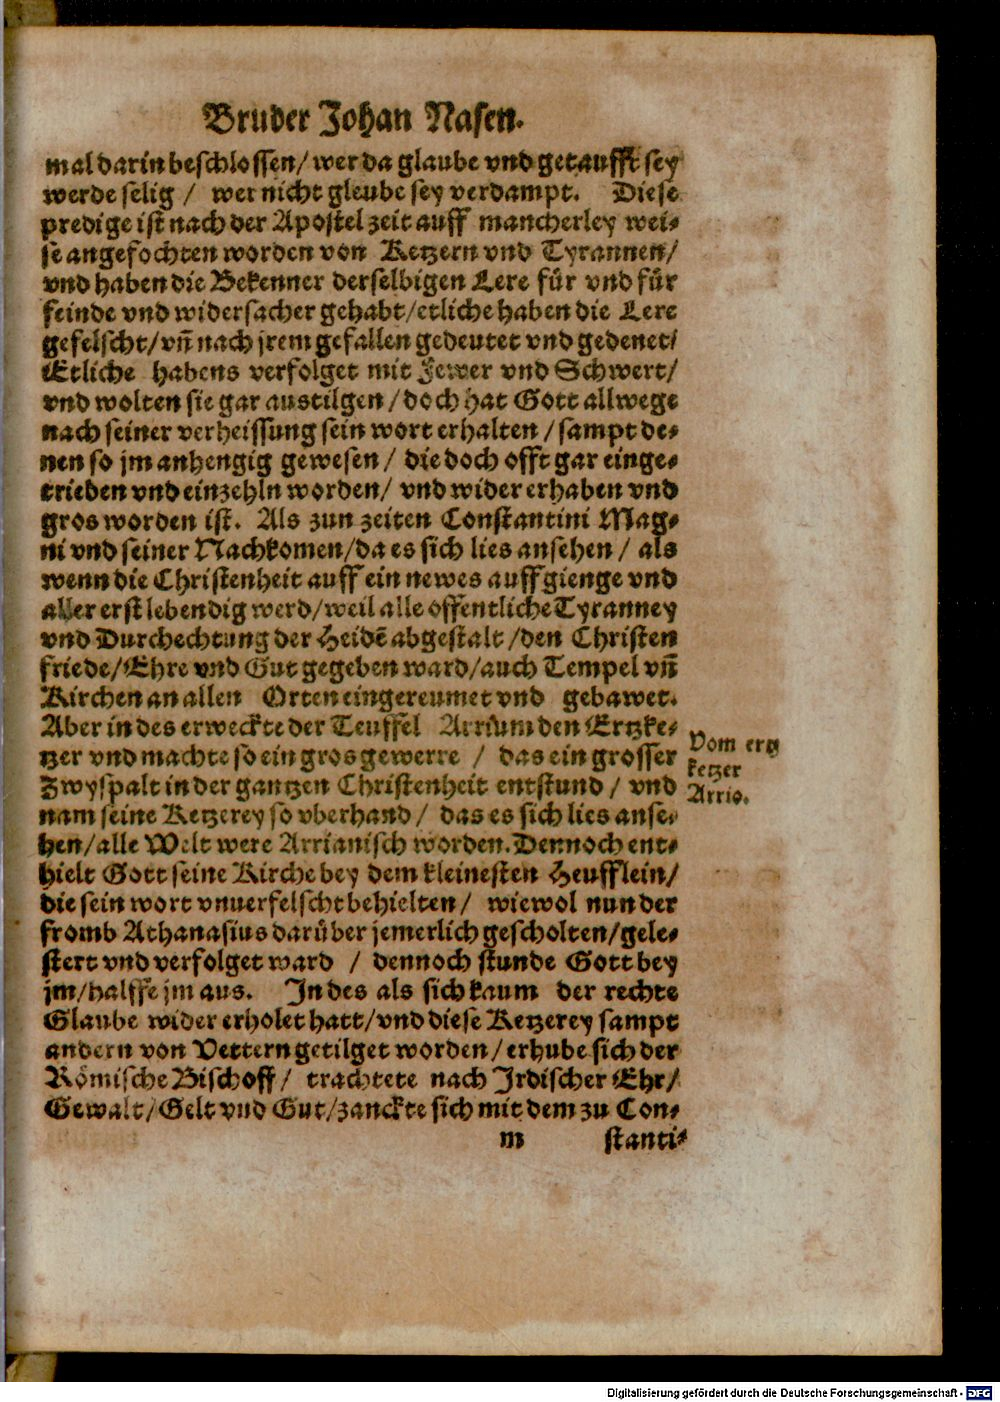 Bruder Johan Nasen.
mal darin beschlossen/ wer da glaube vnd getaufft sey
werde selig / wer nicht gleube sey verdampt. Diese
predige ist nach der Apostel zeit auff mancherley wei⸗
se angefochten worden von Ketzern vnd Tyrannen/
vnd haben die Bekenner derselbigen Lere für vnd für
feinde vnd widersacher gehabt/ etliche haben die Lere
gefelscht/ vñ nach jrem gefallen gedeutet vnd gedenet/
Etliche habens verfolget mit Fewer vnd Schwert/
vnd wolten sie gar austilgen / doch hat Gott allwege
nach seiner verheissung sein wort erhalten / sampt de⸗
nen so jm anhengig gewesen / die doch offt gar einge⸗
trieben vnd einzehln worden/ vnd wider erhaben vnd
gros worden ist. Als zun zeiten Constantini Mag⸗
ni vnd seiner Nachkomen/ da es sich lies ansehen / als
wenn die Christenheit auff ein newes auffgienge vnd
aller erst lebendig werd/ weil alle offentliche Tyranney
vnd Durchechtung der Heidē abgestalt /den Christen
friede/ Ehre vnd Gut gegeben ward/ auch Tempel vñ
Kirchen an allen Orten eingereumet vnd gebawet.
Aber in des erweckte der Teuffel Arrium den Ertzke⸗
tzer vnd machte so ein gros gewerre / das ein grosser
Zwyspalt in der gantzen Christenheit entstund / vnd
nam seine Ketzerey so vberhand / das es sich lies anse⸗
hen/ alle Welt were Arrianisch worden. Dennoch ent⸗
hielt Gott seine Kirche bey dem kleinesten Heufflein/
die sein wort vnuerfelscht behielten/ wiewol nun der
fromb Athanasius darüber jemerlich gescholten/ gele⸗
stert vnd verfolget ward / dennoch stunde Gott bey
jm/ halffe jm aus. In des als sich kaum der rechte
Glaube wider erholet hatt/ vnd diese Ketzerey sampt
andern von Vettern getilget worden/ erhube sich der
Römische Bischoff/ trachtete nach Irdischer Ehr/
Gewalt/ Gelt vnd Gut/ zanckte sich mit dem zu Con⸗
m stanti⸗
Vom ertz
ketzer
Arrio.
Digitalisierung gefördert durch die Deutsche Forschungsgemeinschaft - DFG